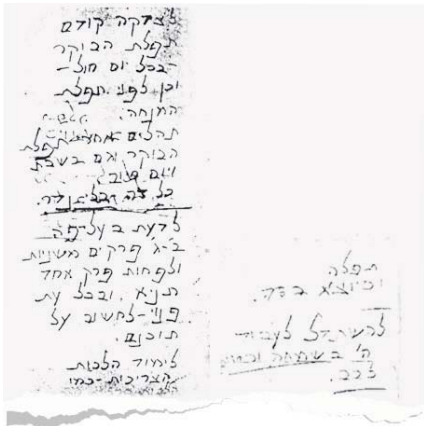 לצדקה קודם
תפלת הבוקר
-בכל יום חול-
וכן לפני תפלת
המנחה.
תהלים אחר תפלת
הבוקר וגם בשבת
ויום טוב.
כל זה בלי נדר.
לדעת בעל-פה
ב'-ג' פרקים משניות
ולפחות פרק אחד
תניא. ובכל עת
פנוי-לחשוב על
תוכנם.
לימוד הלכות
הצריכות-כמו
תפלה
וכיוצא בזה.
להשתדל לעבוד
ה' בשמחה ובטוב
לבב.